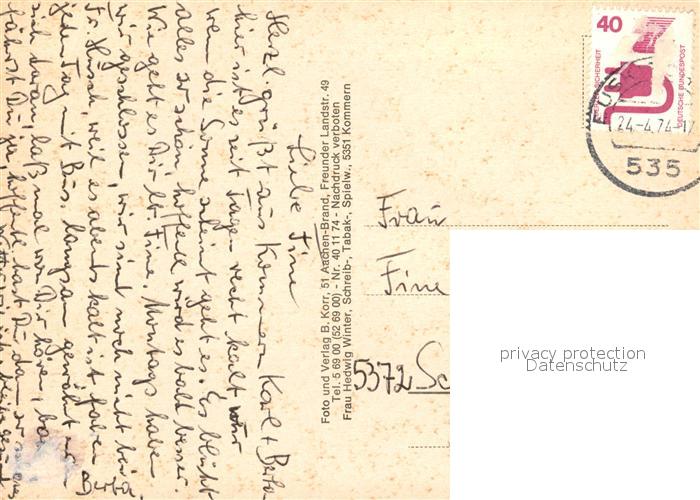 Liebe Fine
Herzl. grüßt aus Kommern Karl + Berta
hier ist es seit Tagen recht kalt, nur
wen die Sonne scheint geht es. Es blüht
alles so schön, hoffentl. wird es bald besser.
Wie geht es Dir lb. Fine. Montags haben
wir geschlossen, wir sind noch nicht bei
Fr. Husch, weil es abends kalt ist, fahren
jeden Tag mit Bus, langsam gewöhnt
sich daran, laß mal von Dir hören,
fährst Du ja, hoffentl. hast Du da
Berta
Foto und Verlag B. Korr, 51 Aachen-Brand, Freunder Landstr. 49
Tel. 5 69 00 (52 69 00) - Nr. 40 11 74 - Nachdruck verboten
Frau Hedwig Winter, Schreib-, Tabak-, Spielw., 5351 Kommern
40
DEUTSCHE BUNDESPOST
24-4.74-17
535
Frau
Fine
5372 Sc
privacy protection
Datenschutz